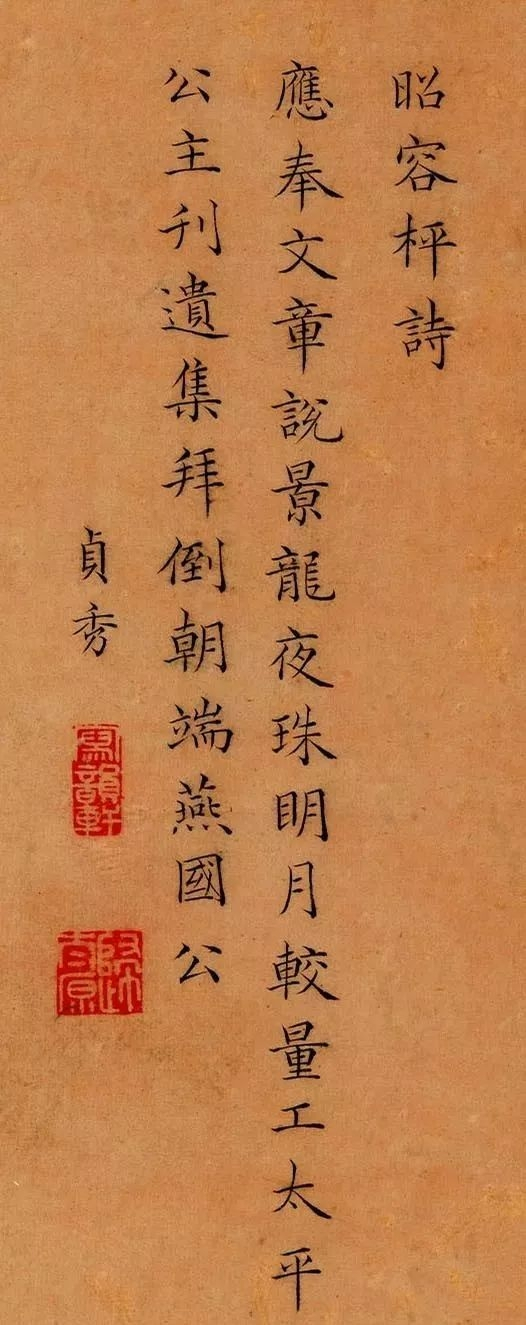 昭容枰詩
應奉文章說景龍夜珠明月較量工太平
公主刋遺集拜倒朝端燕國公
貞秀
寫韻軒